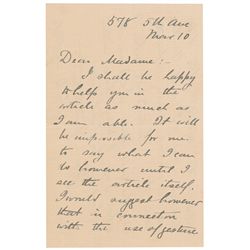 578 5th Ave
Nov 10
Dear Madame:-
I shall be happy
to help you in the
article as much as
I am able. It will
be impossible for me
to say what I can
do however until I
see the article itself.
I would suggest however
that in connection
with the use of gesture